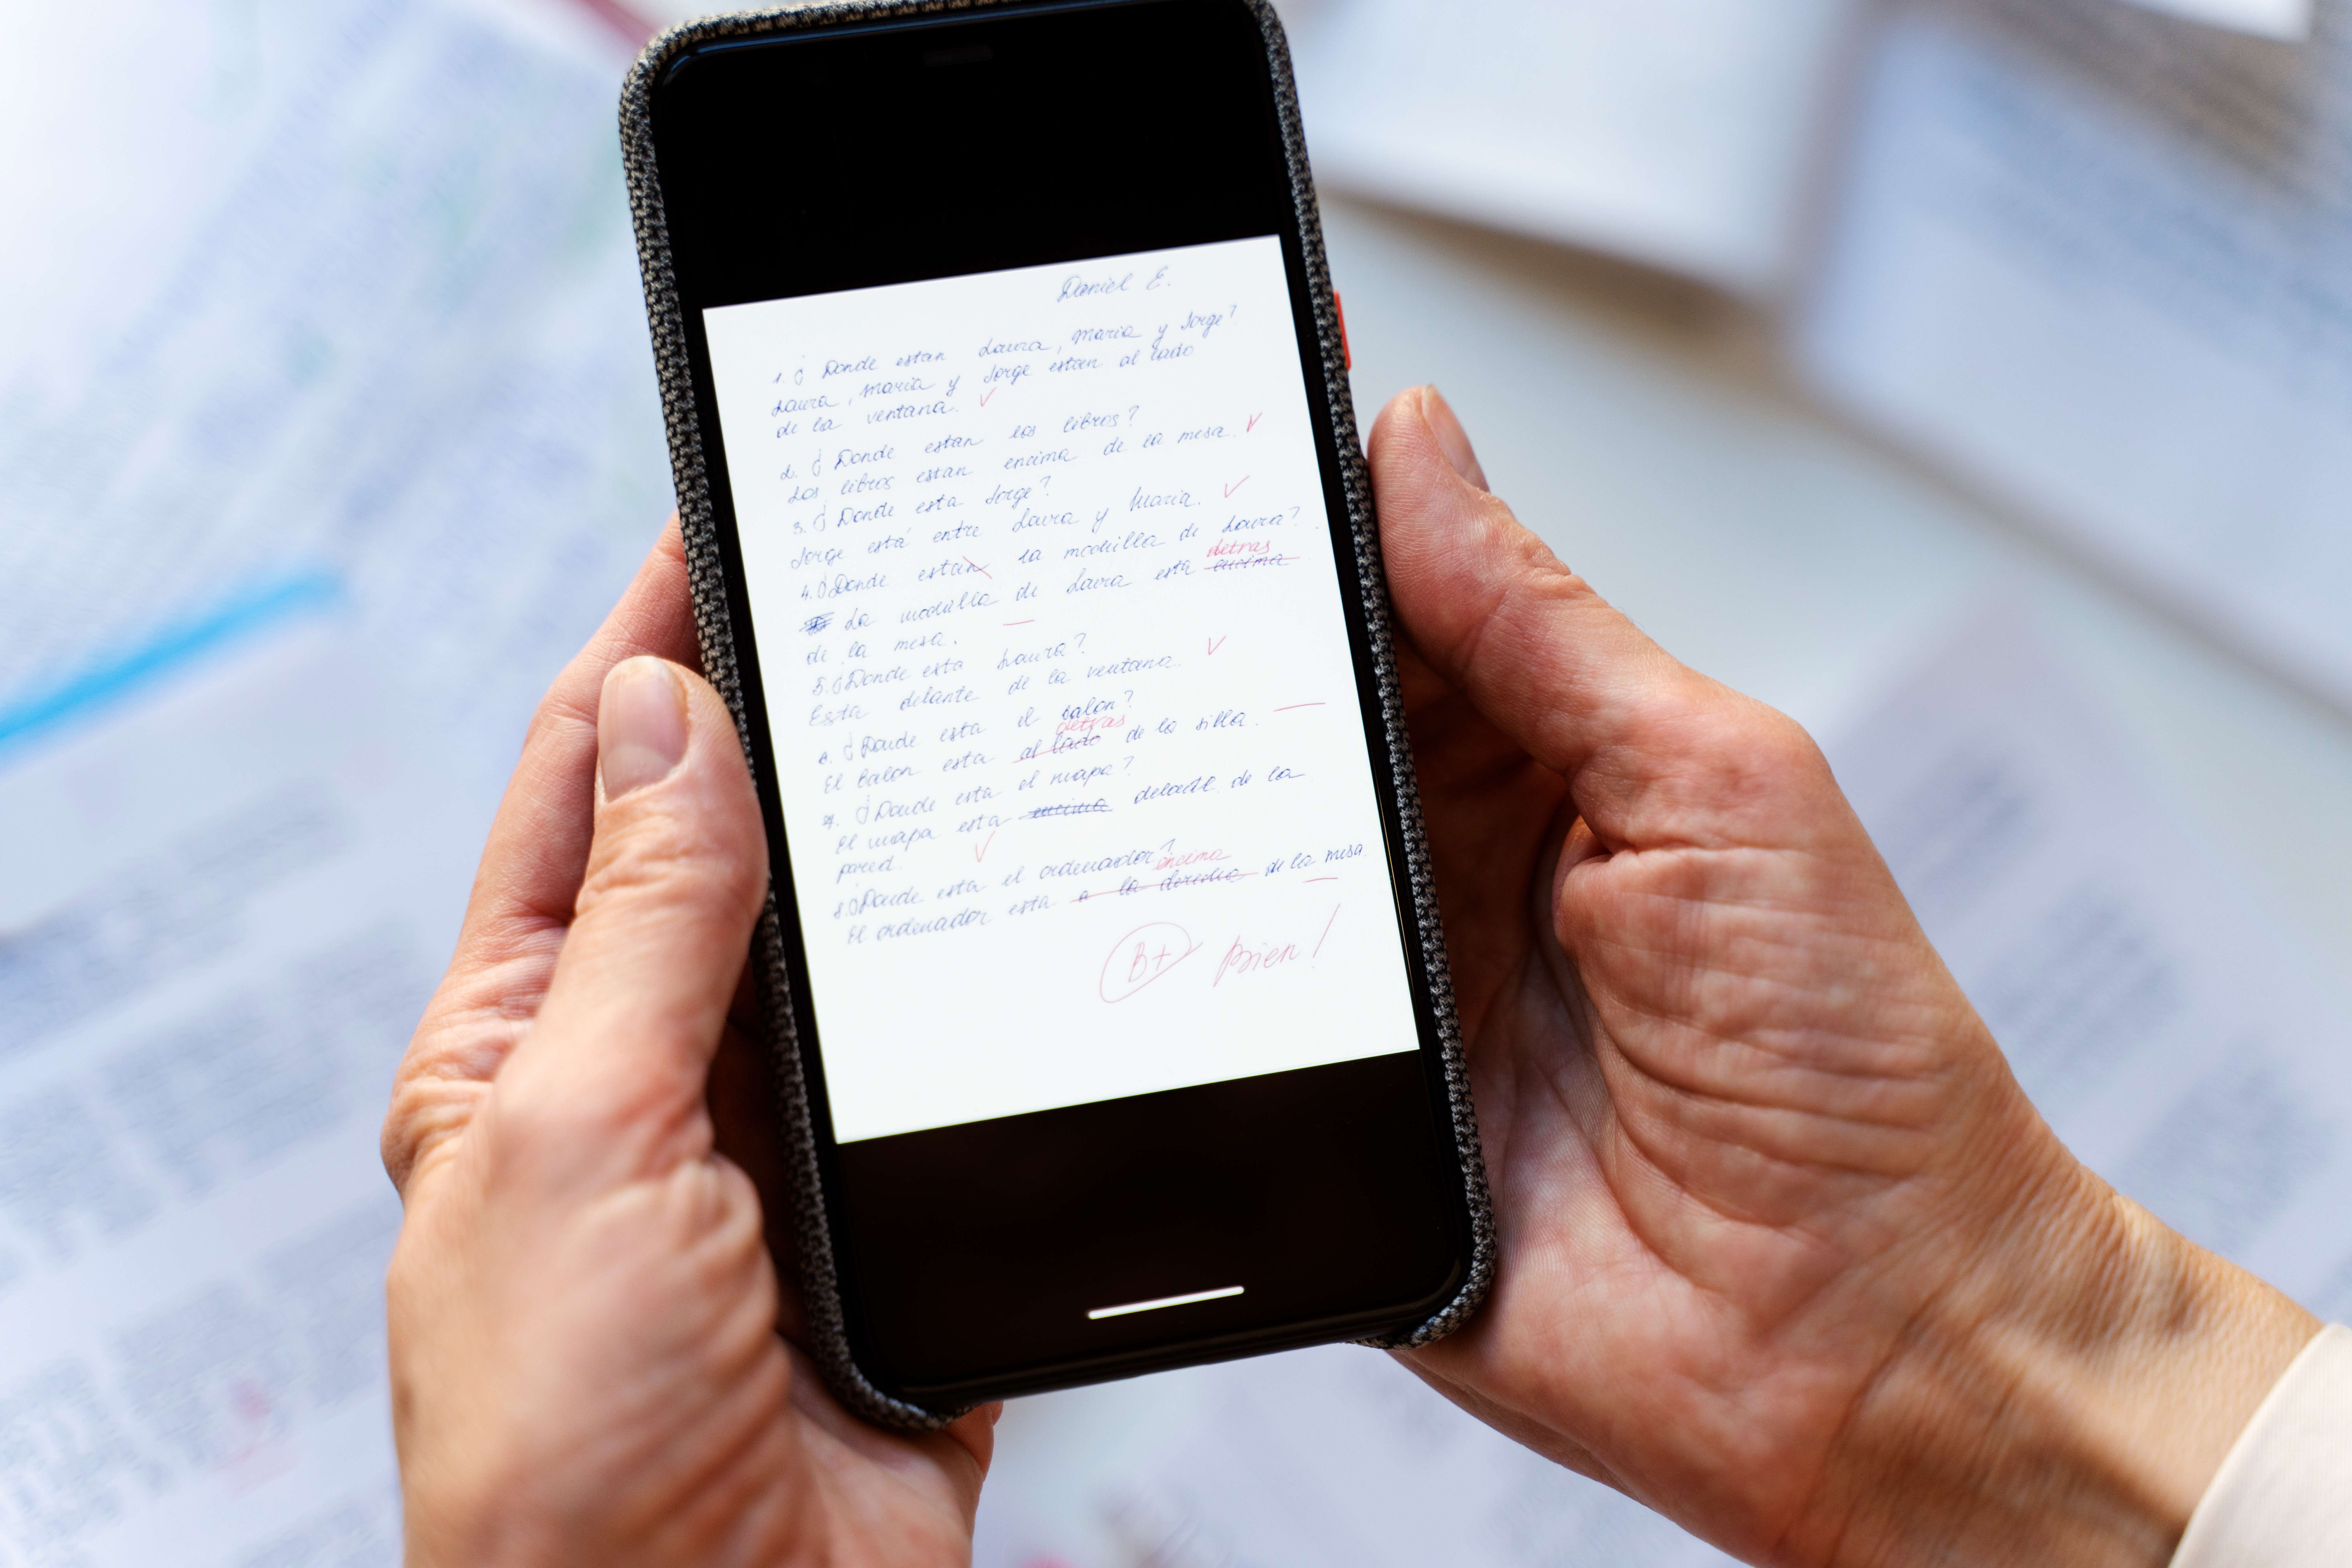 Daniel E.
1. ¿ Donde estan Laura, Maria y Jorge?
Laura, Maria y Jorge estan al lado
de la ventana. ✓
2. ¿ Donde estan los libros?
Los libros estan encima de la mesa. ✓
3. ¿ Donde esta Jorge?
Jorge está entre Laura y Maria. ✓
4. ¿Donde estan la mochilla de Laura?
detras
La mochilla de Laura esta encima
de la mesa. —
5. ¿Donde esta Laura?
Esta delante de la ventana. ✓
6. ¿Donde esta el balon?
detras
El balon esta al lado de la silla. —
7. ¿Donde esta el mapa?
El mapa esta encima de la
pared. ✓
8. ¿Donde esta el ordenador?
encima
El ordenador esta a la derecha de la mesa.
—
B+ Bien!